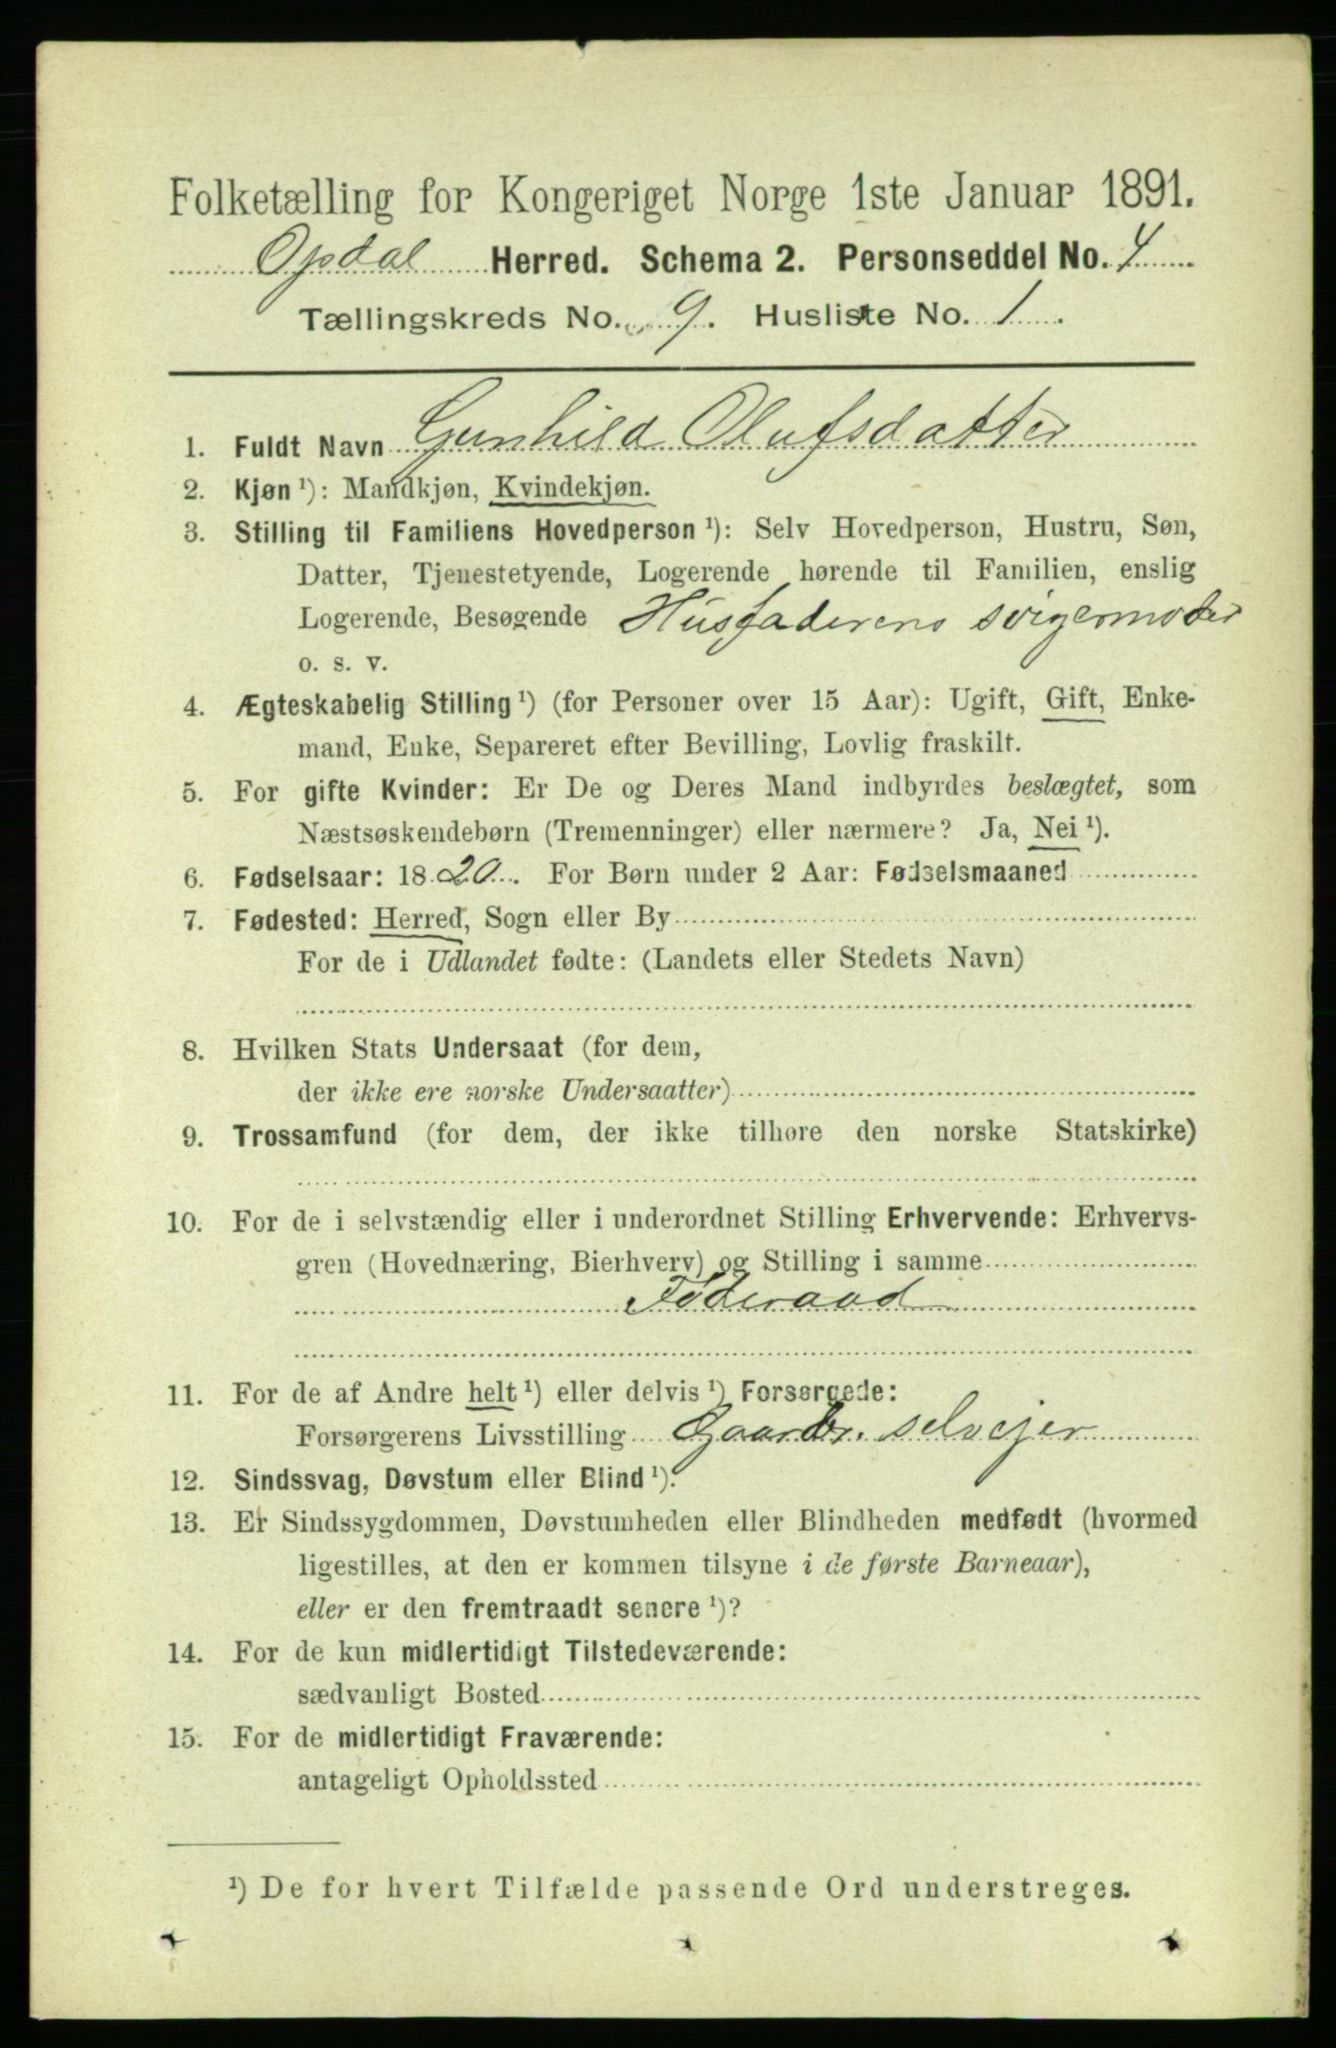 Folketælling for Kongeriget Norge 1ste Januar 1891.
Opdal Herred. Schema 2. Personseddel No. 4
Tællingskreds No. 9. Husliste No. 1.
1. Fuldt Navn Gunhild Olufsdatter
2. Kjøn ¹): Mandkjøn, Kvindekjøn.
3. Stilling til Familiens Hovedperson ¹): Selv Hovedperson, Hustru, Søn,
Datter, Tjenestetyende, Logerende hørende til Familien, enslig
Logerende, Besøgende Husfaderens svigermoder
o. s. v.
4. Ægteskabelig Stilling ¹) (for Personer over 15 Aar): Ugift, Gift, Enke-
mand, Enke, Separeret efter Bevilling, Lovlig fraskilt.
5. For gifte Kvinder: Er De og Deres Mand indbyrdes beslægtet, som
Næstsøskendebørn (Tremenninger) eller nærmere? Ja, Nei ¹).
6. Fødselsaar: 1820. For Børn under 2 Aar: Fødselsmaaned
7. Fødested: Herred, Sogn eller By
For de i Udlandet fødte: (Landets eller Stedets Navn)
8. Hvilken Stats Undersaat (for dem,
der ikke ere norske Undersaatter)
9. Trossamfund (for dem, der ikke tilhøre den norske Statskirke)
10. For de i selvstændig eller i underordnet Stilling Erhvervende: Erhvervs-
gren (Hovednæring, Bierhverv) og Stilling i samme
Føderaad
11. For de af Andre helt ¹) eller delvis ¹) Forsørgede:
Forsørgerens Livsstilling Gaardbr. selvejer
12. Sindssvag, Døvstum eller Blind ¹).
13. Er Sindssygdommen, Døvstumheden eller Blindheden medfødt (hvormed
ligestilles, at den er kommen tilsyne i de første Barneaar),
eller er den fremtraadt senere ¹)?
14. For de kun midlertidigt Tilstedeværende:
sædvanligt Bosted
15. For de midlertidigt Fraværende:
antageligt Opholdssted
¹) De for hvert Tilfælde passende Ord understreges.